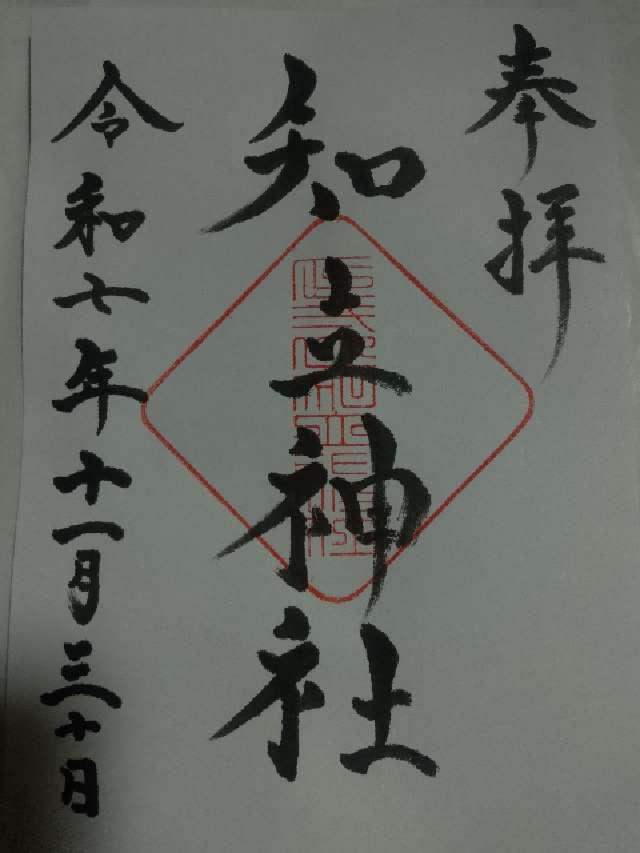 奉拝
知立神社
令和七年十一月三十日